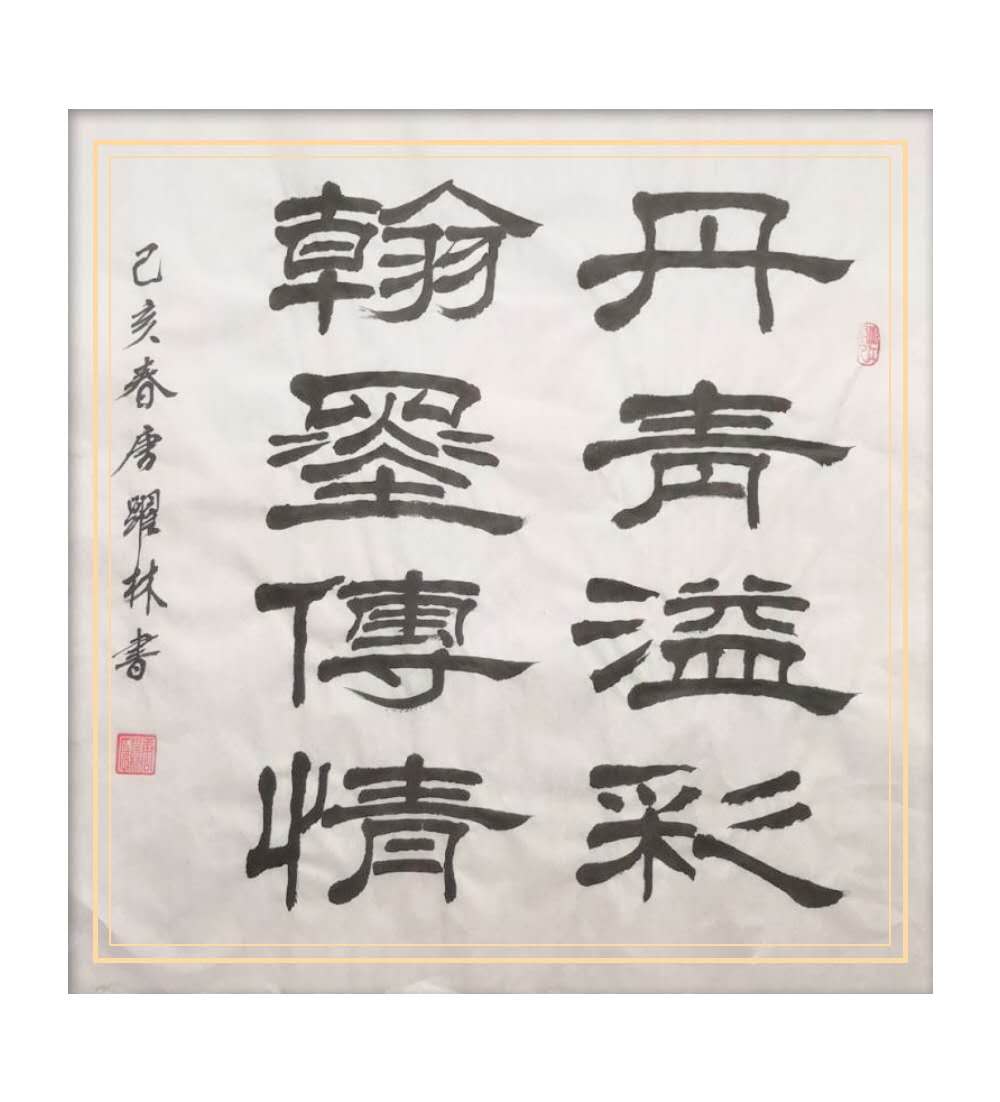 丹青溢彩
翰墨傳情
己亥春唐躍林書